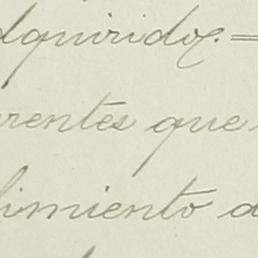 dquirido
rentes que
imiento